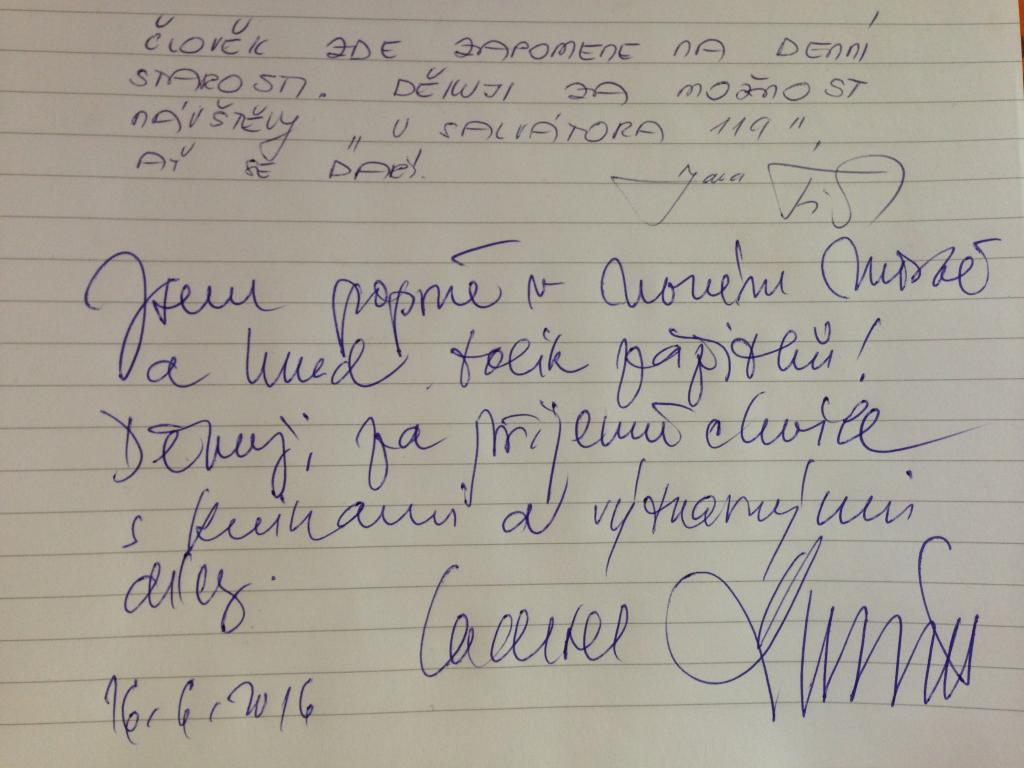 ČLOVĚK ZDE ZAPOMENE NA DENNÍ
STAROSTI. DĚKUJI ZA MOŽNOST
NÁVŠTĚVY „U SALVÁTORA 119",
AŤ SE DAŘÍ. Jana
Jsem poprvé v Novém Městě
a hned tolik zážitků!
Děkuji za příjemné chvíle
s knihami a významnými
díly.
16. 6. 2016